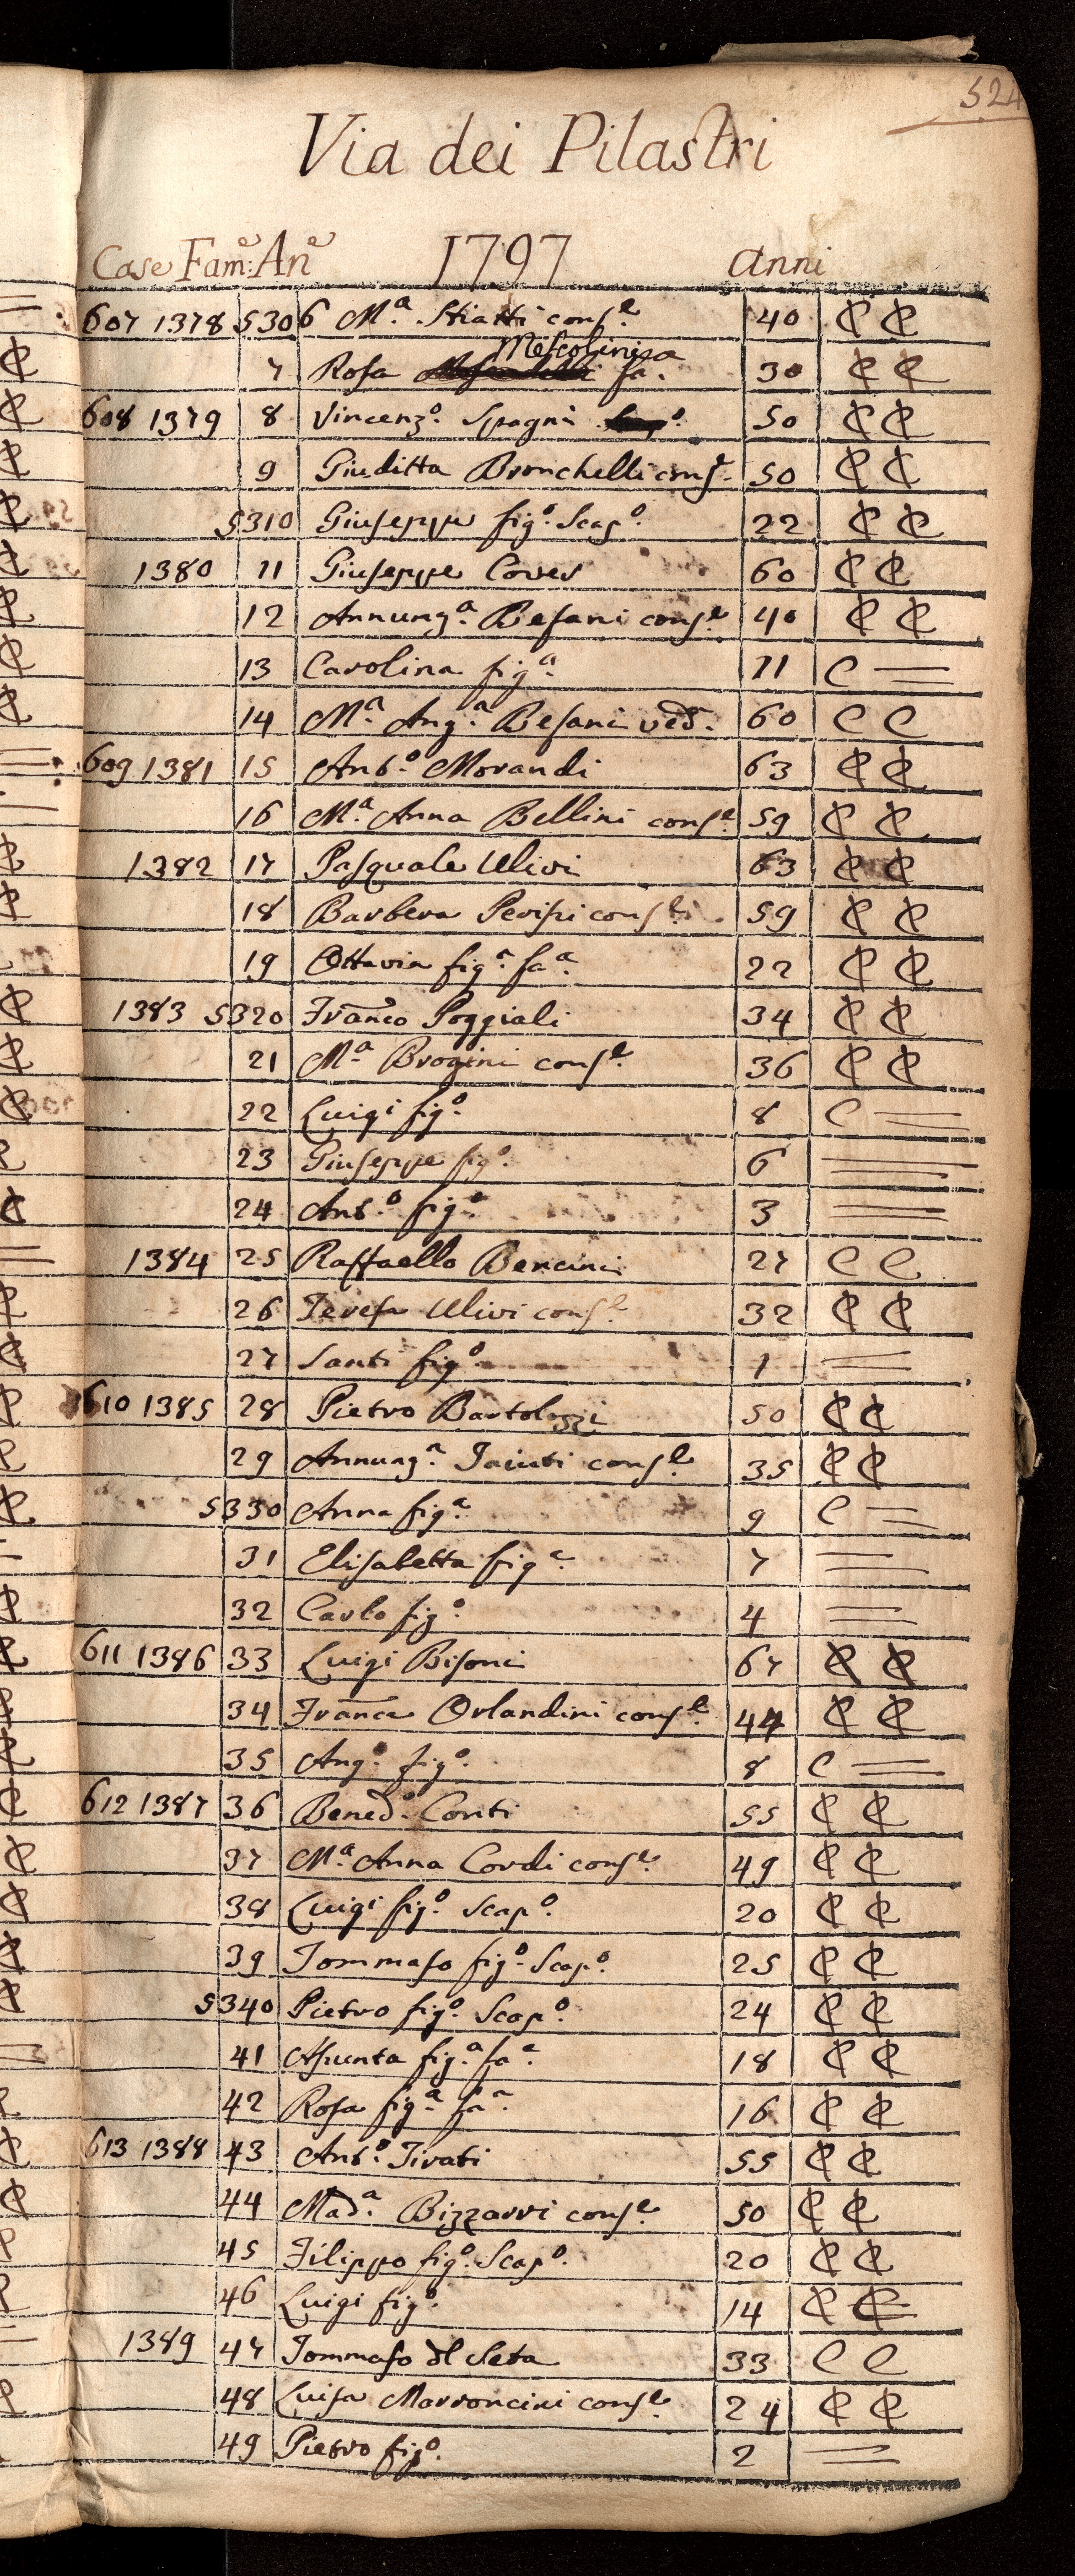 524
Via dei Pilastri
Case Fam:e An:e 1797 anni
607 1378 5306 M.a Stiatti cons.e 40 ₵ ₵
7 Rosa Mescolini fa.a 30 ₵ ₵
608 1379 8 Vincenz.o Spagni 50 ₵ ₵
9 Giuditta Bronchelli cons.e 50 ₵ ₵
5310 Giuseppe fig.o Scap.o 22 ₵ ₵
1380 11 Giuseppe Coves 60 ₵ ₵
12 Annunz.a Besani cons.e 40 ₵ ₵
13 Carolina fig.a 11 C =
14 M.a Ang.a Besani ved.a 60 C C
609 1381 15 Ant.o Morandi 63 ₵ ₵
16 M.a Anna Bellini cons.e 59 ₵ ₵
1382 17 Pasquale Ulivi 63 ₵ ₵
18 Barbera Perissi cons.e 59 ₵ ₵
19 Ottavia fig.a fa.a 22 ₵ ₵
1383 5320 Franco Poggiali 34 ₵ ₵
21 M.a Brogini cons.e 36 ₵ ₵
22 Luigi fig.o 8 C =
23 Giuseppe fig.o 6 =
24 Ant.o fig.o 3 =
1384 25 Raffaello Bencini 27 C C
26 Teresa Ulivi cons.e 32 ₵ ₵
27 Santi fig.o 1 =
610 1385 28 Pietro Bartolozzi 50 ₵ ₵
29 Annunz.a Taiuti cons.e 35 ₵ ₵
5330 Anna fig.a 9 C =
31 Elisabetta fig.a 7 =
32 Carlo fig.o 4 =
611 1386 33 Luigi Bisoni 67 ₵ ₵
34 Franca Orlandini cons.e 44 ₵ ₵
35 Ang.o fig.o 8 C =
612 1387 36 Bened.o Conti 55 ₵ ₵
37 M.a Anna Cordi cons.e 49 ₵ ₵
38 Luigi fig.o Scap.o 20 ₵ ₵
39 Tommaso fig.o Scap.o 25 ₵ ₵
5340 Pietro fig.o Scap.o 24 ₵ ₵
41 Assunta fig.a fa.a 18 ₵ ₵
42 Rosa fig.a fa.a 16 ₵ ₵
613 1388 43 Ant.o Tirati 55 ₵ ₵
44 Mad.a Bizzarri cons.e 50 ₵ ₵
45 Filippo fig.o Scap.o 20 ₵ ₵
46 Luigi fig.o 14 ₵ ₵
1389 47 Tommaso del Seta 33 C C
48 Luisa Marroncini cons.e 24 ₵ ₵
49 Pietro fig.o 2 =